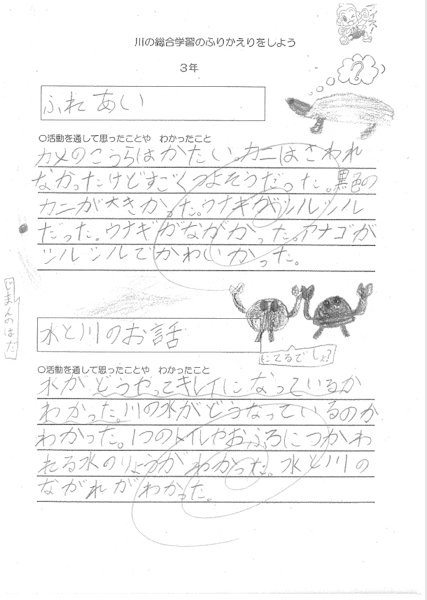 川の総合学習のふりかえりをしよう
3年
?
ふれあい
○活動を通して思ったことや わかったこと
カメのこうらはかたい。カニはさわれ
なかったけどすごくつよそうだった。黒色の
カニが大きかった。ウナギがシルシル
だった。ウナギがながかった。アナゴが
シルシルでかわいかった。
じまんのはた
水と川のお話
にてるでしょ?
○活動を通して思ったことや わかったこと
水がどうやってキレイになっているか
わかった。川の水がどうなっているのか
わかった。1つのトイレやおふろにつかわ
れる水のりょうがわかった。水と川の
ながれがわかった。